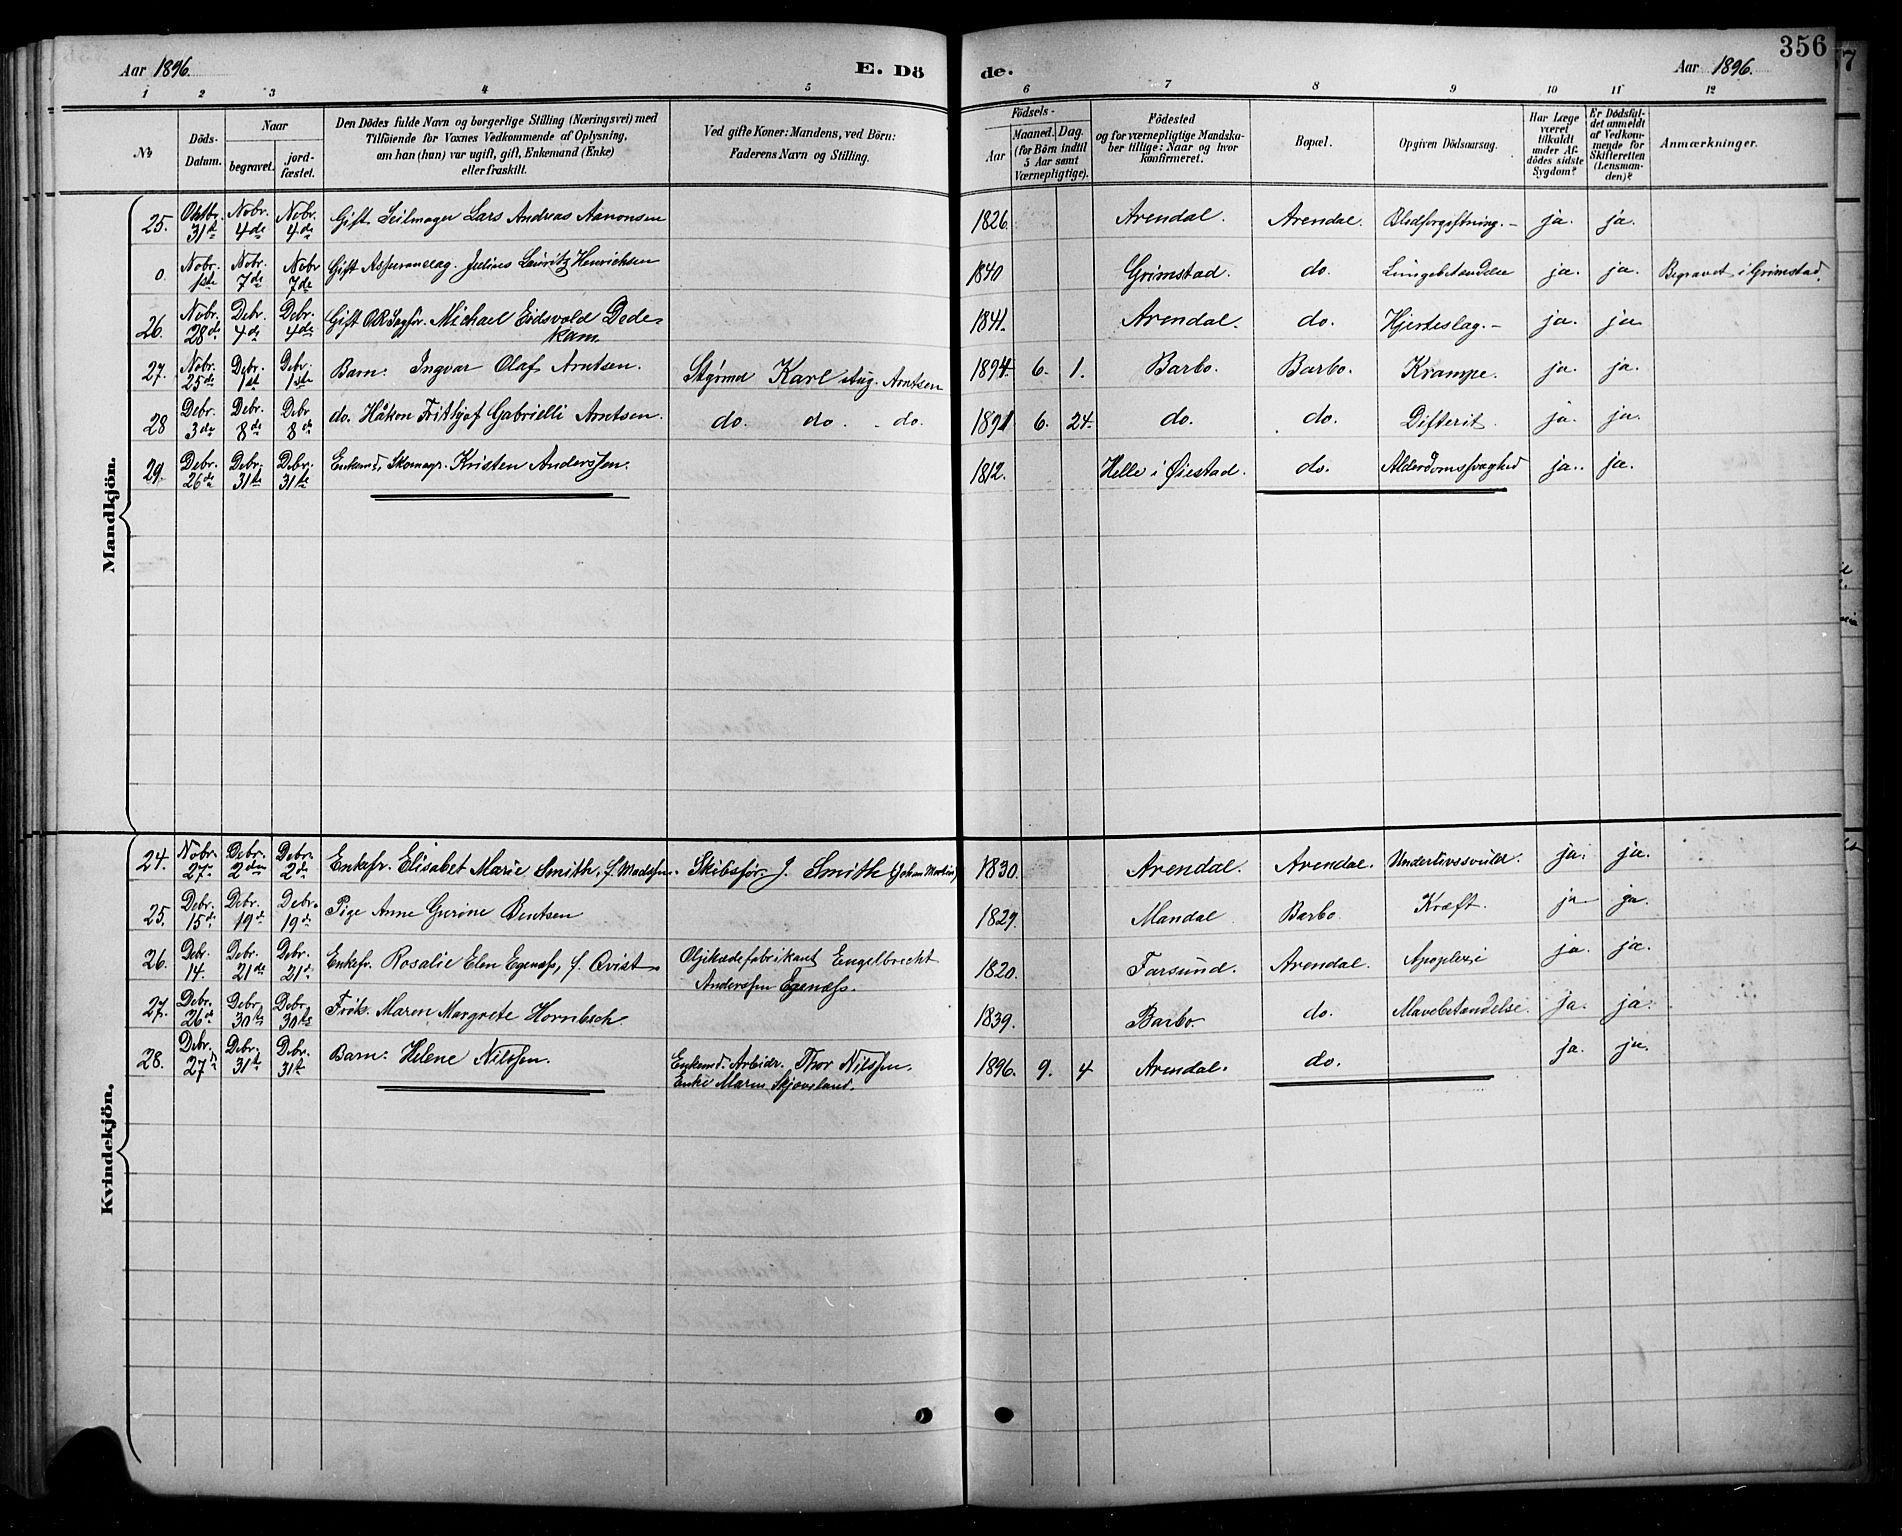 356
7
Aar 1896.
E. Dö
de.
Aar 1896.
1 2 3 4 5 6 7 8 9 10 11 12
No
Döds-
Datum.
Naar
begravet.
jord-
fæstet.
Den Dödes fulde Navn og borgerlige Stilling (Næringsvei) med
Tilföiende for Voxnes Vedkommende af Oplysning,
om han (hun) var ugift, gift, Enkemand (Enke)
eller fraskilt.
Ved gifte Koner: Mandens, ved Börn:
Faderens Navn og Stilling.
Födsels-
Aar
Maaned. Dag.
(for Börn indtil
5 Aar samt
Værnepligtige).
Födested
og for værnepligtige Mandska-
ber tillige: Naar og hvor
konfirmeret.
Bopæl.
Opgiven Dödsaarsag.
Har Læge
været
tilkaldt
under Af-
dödes sidste
Sygdom?
Er Dödsfal-
det anmeldt
af Vedkom-
mende for
Skifteretten
(Lensman-
den)?
Anmærkninger.
Mandkjön.
25. Oktbr. 31te Nobr. 4de Nobr. 4de Gift Seilmager Lars Andreas Aanonsen 1826. Arendal. Arendal. Blodforgiftning. ja. ja.
0. Nobr. 1ste Nobr. 7de Nobr 7de Gift Julius Lauritz Henrichsen 1840 Grimstad. do. Lungebetændelse ja. ja. Begravet i Grimstad.
26. Nobr. 28de Debr. 4de Debr. 4de Gift Michael Eidsvold Dede-
kam 1841. Arendal. do. Hjerteslag. ja. ja
27. Nobr. 25de Debr. 1ste Debr. 1ste Barn: Ingvar Olaf Arntsen. Styrmd Karl Aug. Arntsen 1894. 6. 1. Barbo. Barbo. Krampe. ja. ja.
28 Debr. 3de Debr. 8de Debr 8de do. Håkon Frithjof Gabrielli Arntsen. do. do. do. 1891 6. 24. do. do. Difterit. ja. ja.
29. Debr. 26de Debr. 31te Debr. 31te Enkemd. Skomagr. Kristen Anderssen. 1812. Helle i Øiestad. do. Alderdomssvaghed ja. ja.
Kvindekjön.
24. Nobr. 27. Debr. 2den Debr. 2de Enkefr. Elisabet Marie Smith, f. Madssen. Skibsfør. J. Smith (Johan Martin) 1830. Arendal. Arendal. Underlivssvulst. ja. ja.
25. Debr. 15de Debr. 19de Debr. 19de Pige Anne Gurine Bentsen 1829. Mandal Barbo. Kræft. ja ja.
26. Debr. 14. Debr. 21de Debr. 21de Enkefr. Rosalie Elen Egenæss, f. Qvist. Oljeklædefabrikant Engelbrecht
Anderssen Egenæss. 1820. Farsund. Arendal. Apoplexie ja. ja.
27. Debr. 26de Debr. 30te Debr. 30te Frøk. Maren Margrete Hornbech. 1839. Barbo. do. Mavebetændelse. ja. ja.
28. Debr. 27de Debr. 31te Debr. 31te Barn: Helene Nilssen. Enkemd. Arbeidr. Thor Nilssen.
Enke Maren Skjovsland. 1896. 9. 4 Arendal. do. ja. ja.